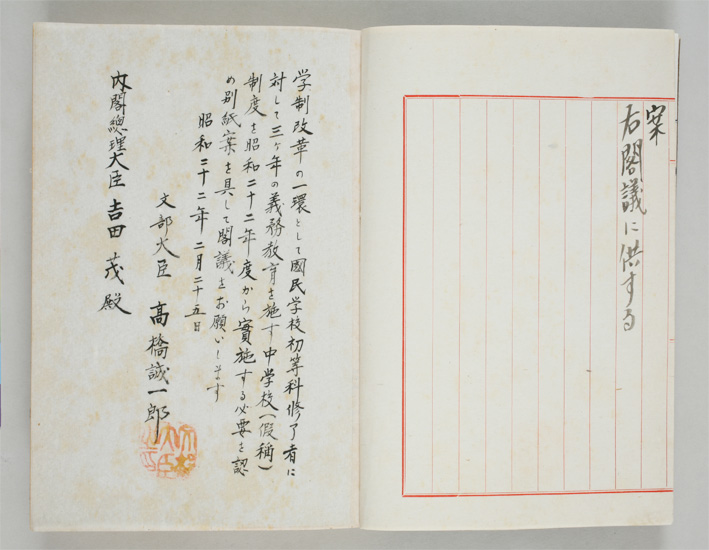 案
右閣議に供する
学制改革の一環として國民学校初等科修了者に
対して三ヶ年の義務教育を施す中学校(假稱)
制度を昭和二十二年度から實施する必要を認
め別紙案を具して閣議をお願いします
昭和二十二年二月二十五日
文部大臣 高橋誠一郎
内閣總理大臣 吉田茂殿